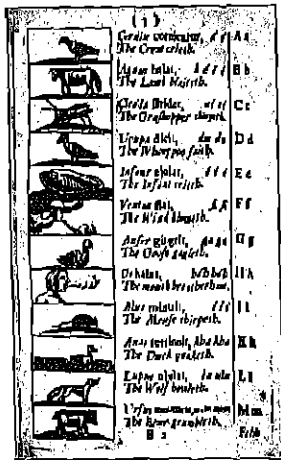 Cornix cornicatur, á á A a
The Crow crieth.
Agnus balat, b é é é B b
The Lamb blaiteth.
Cicada stridet, ci ci C c
The Grashopper chirpeth.
Upupa dicit, du du D d
The Whooppoo saith.
Infans ejulat, é é é E e
The Infant crieth.
Ventus flat, fi fi F f
The Wind bloweth.
Anser gingrit, ga ga G g
The Goose gagleth.
Os halat, há'h há'h H h
The mouth breatheth out.
Mus mintrit, í í í I i
The Mouse chirpeth.
Anas tetrinnit, kha kha K k
The Duck quaketh.
Lupus ululat, lu ulu L l
The Wolf howleth.
Ursus M m
The Bear grumbleth.
B 2